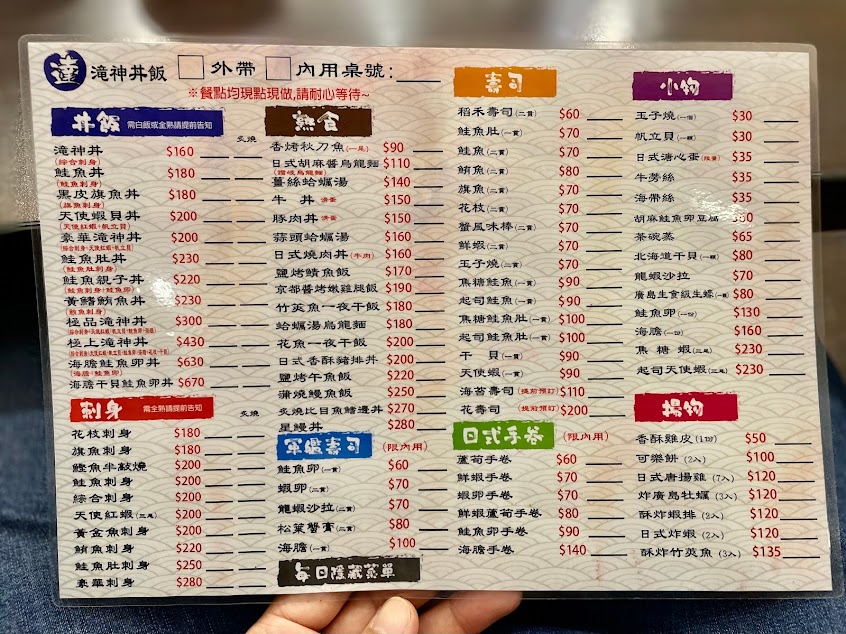 達 滝神丼飯 外帶 內用桌號:
※餐點均現點現做,請耐心等待~
丼飯 需白飯或全熟請提前告知
炙燒
滝神丼 $160
(綜合刺身)
鮭魚丼 $180
(鮭魚刺身)
黑皮旗魚丼 $180
(旗魚刺身)
天使蝦貝丼 $200
豪華滝神丼 $200
鮭魚肚丼 $230
(鮭魚肚刺身)
鮭魚親子丼 $220
(鮭魚刺身、鮭魚卵)
黃鰭鮪魚丼 $230
(鮪魚刺身)
極品滝神丼 $300
極上滝神丼 $430
海膽鮭魚卵丼 $630
(海膽、鮭魚卵)
海膽干貝鮭魚卵丼 $670
刺身 需全熟請提前告知
炙燒
花枝刺身 $180
旗魚刺身 $180
鰹魚半敲燒 $200
鮭魚刺身 $200
綜合刺身 $200
天使蝦(三尾) $200
黃金魚刺身 $200
鮪魚刺身 $220
鮭魚肚刺身 $250
豪華刺身 $280
熟食
香烤秋刀魚(一尾) $90
日式胡麻醬烏龍麵 $110
(讚岐烏龍麵)
薑絲蛤蠣湯 $140
牛 丼 $150
豚肉丼 $150
蒜頭蛤蠣湯 $160
日式燒肉丼(牛肉) $160
鹽烤鯖魚飯 $170
京都醬烤嫩雞腿飯 $190
竹筴魚一夜干飯 $180
蛤蠣湯烏龍麵 $180
花魚一夜干飯 $200
日式香酥豬排丼 $200
鹽烤午魚飯 $220
蒲燒鰻魚飯 $250
炙燒比目魚鰭邊丼 $270
星鰻丼 $280
軍艦壽司 (限內用)
鮭魚卵(一貫) $60
蝦卵(二貫) $70
龍蝦沙拉(二貫) $70
松葉蟹膏(二貫) $80
海膽(一貫) $100
每日隱藏菜單
壽司
稻禾壽司(二貫) $60
鮭魚肚(一貫) $70
鮭魚(二貫) $70
鮪魚(二貫) $80
旗魚(二貫) $70
花枝(二貫) $70
蟹風味棒(二貫) $70
鮮蝦(二貫) $70
玉子燒(二貫) $70
焦糖鮭魚(一貫) $90
起司鮭魚(一貫) $90
焦糖鮭魚肚(一貫) $100
起司鮭魚肚(一貫) $100
干 貝(一貫) $90
天使蝦(一貫) $90
海苔壽司(提前預訂) $110
花壽司 (提前預訂) $200
日式手卷 (限內用)
蘆筍手卷 $60
鮮蝦手卷 $70
蝦卵手卷 $70
鮮蝦蘆筍手卷 $80
鮭魚卵手卷 $90
海膽手卷 $140
小物
玉子燒(一個) $30
帆立貝(一顆) $30
日式溏心蛋(限量) $35
牛蒡絲 $35
海帶絲 $35
胡麻鮭魚卵豆腐
茶碗蒸 $65
北海道干貝(一顆) $80
龍蝦沙拉 $70
廣島生食級生蠔(一顆) $80
鮭魚卵(一份) $130
海膽(一份) $160
焦糖蝦(三尾) $230
起司天使蝦(三尾) $230
揚物
香酥雞皮(1份) $50
可樂餅(2入) $100
日式唐揚雞(7入) $120
炸廣島牡蠣(3入) $120
酥炸蝦排(2入) $120
日式炸蝦(2入) $120
酥炸竹筴魚(3入) $135